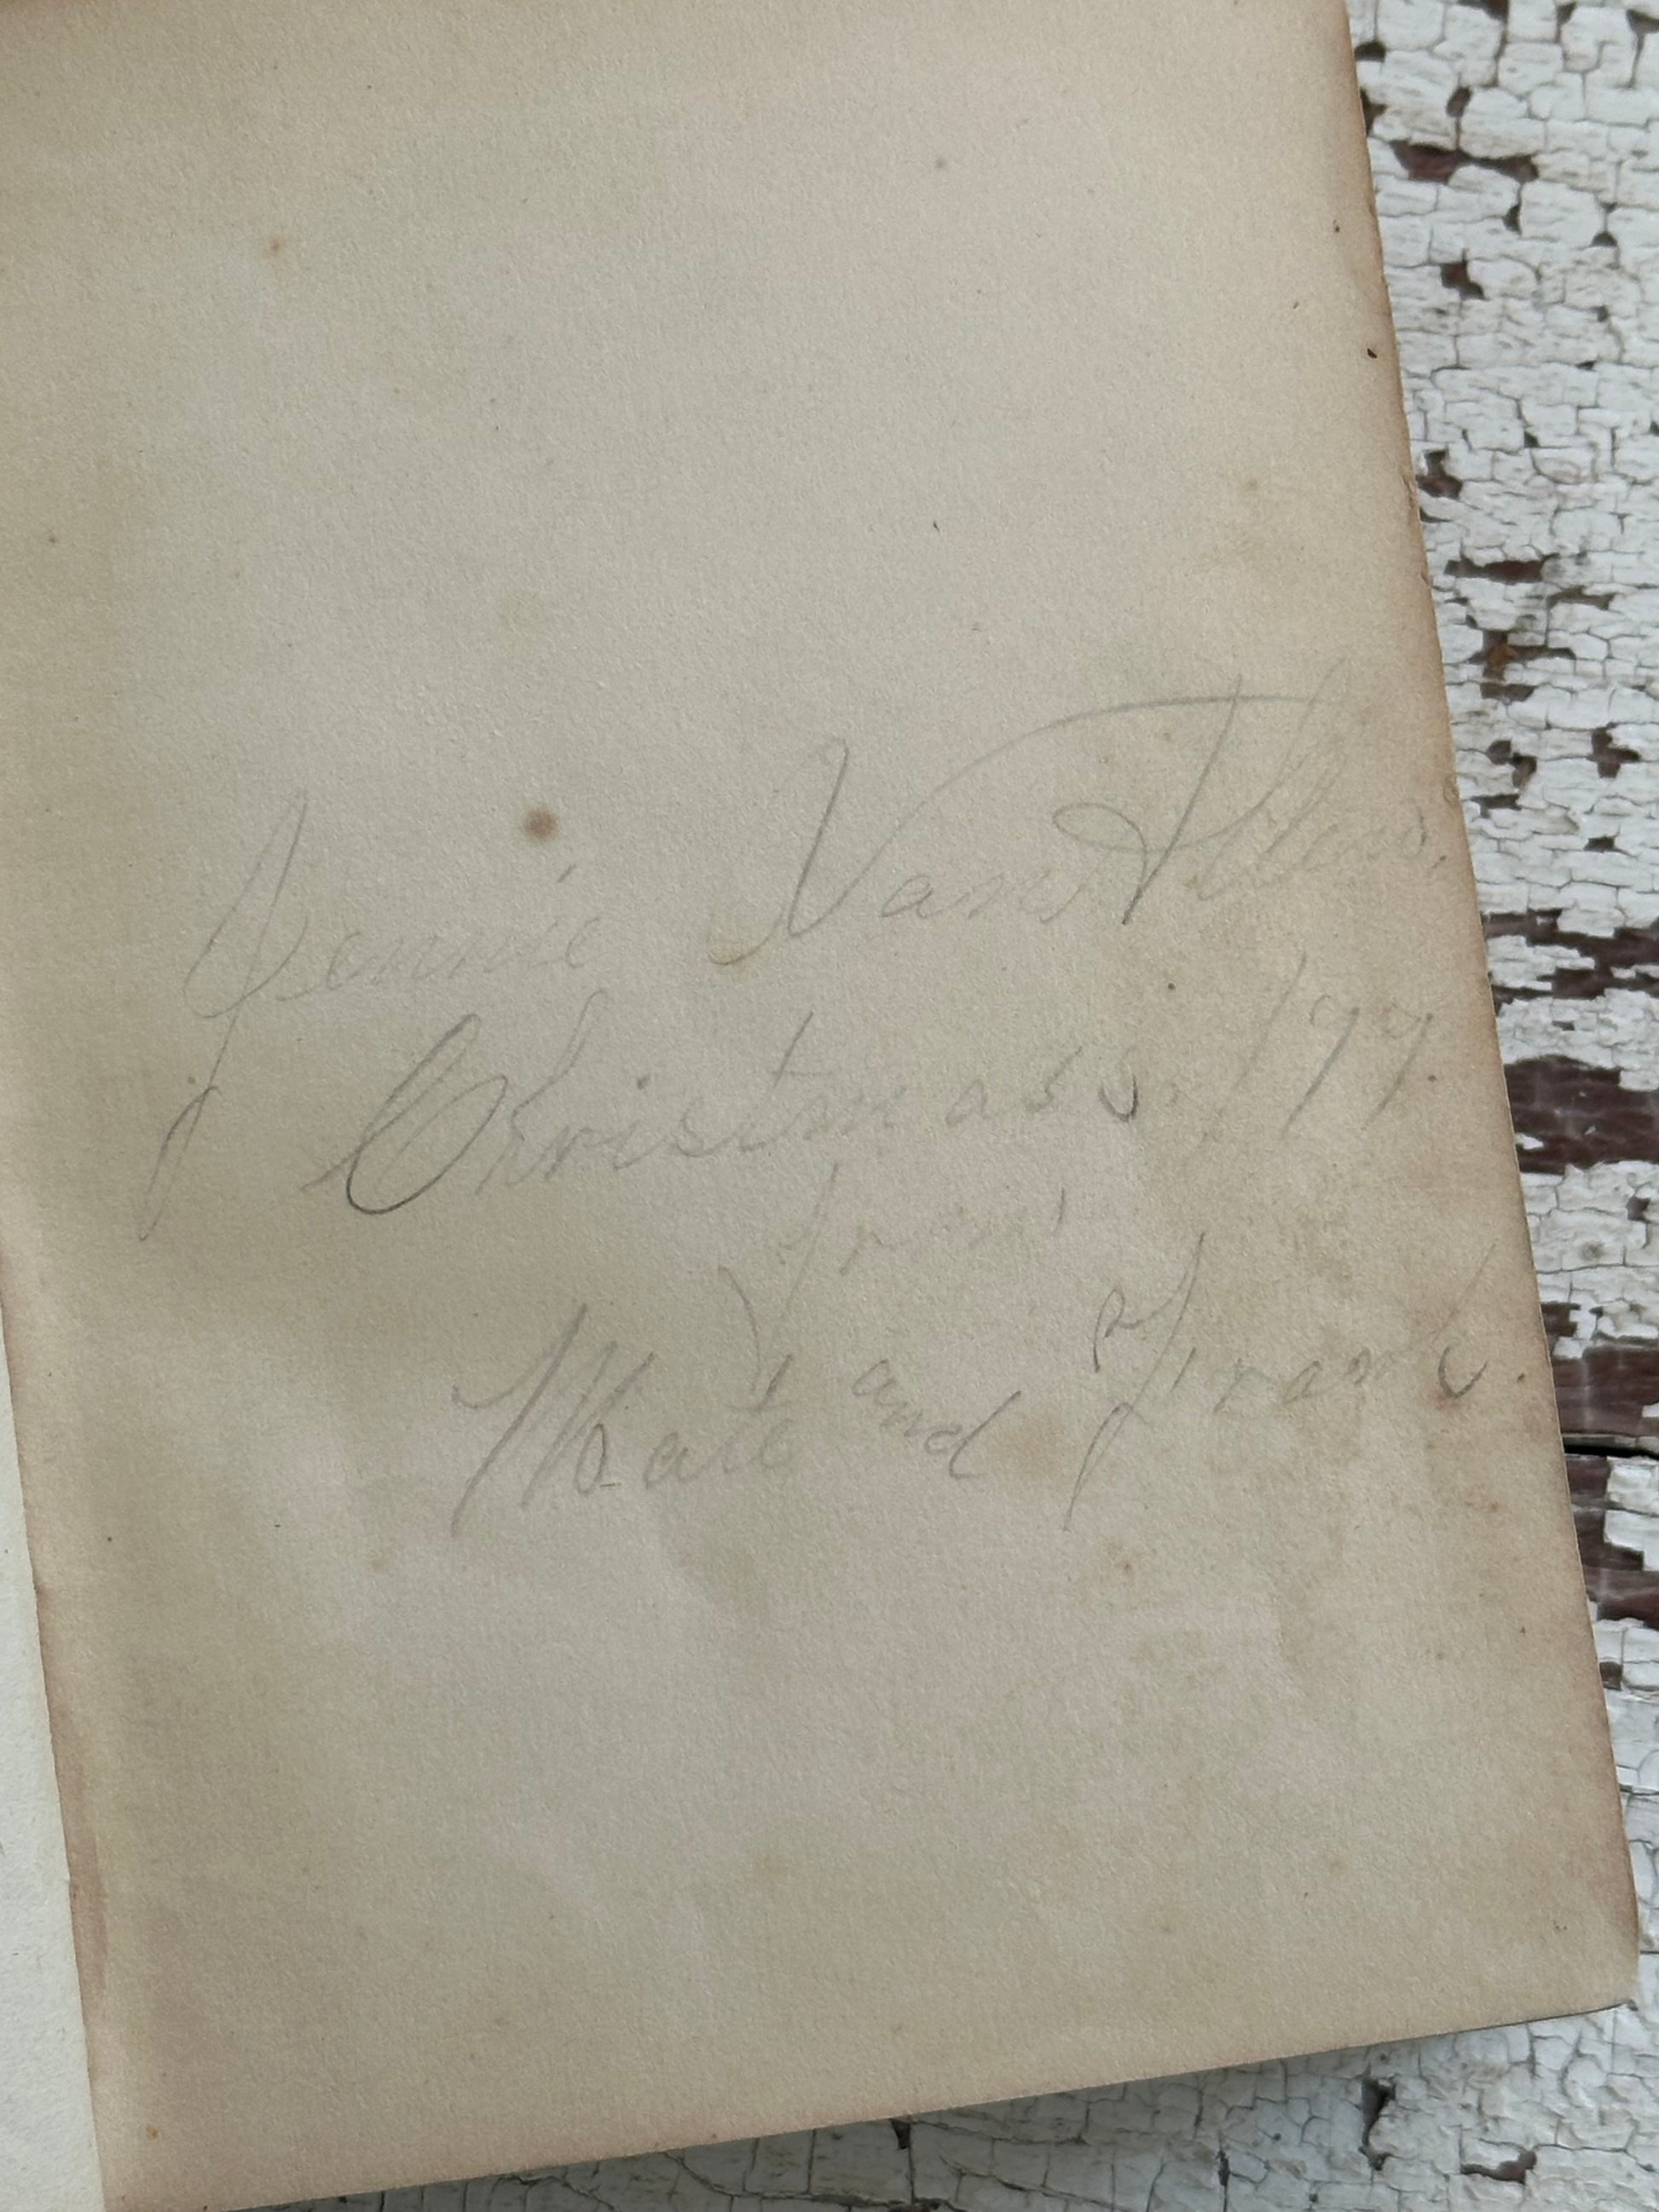 Jennie Van Allen.
Christmass. '77
from
and Frank.